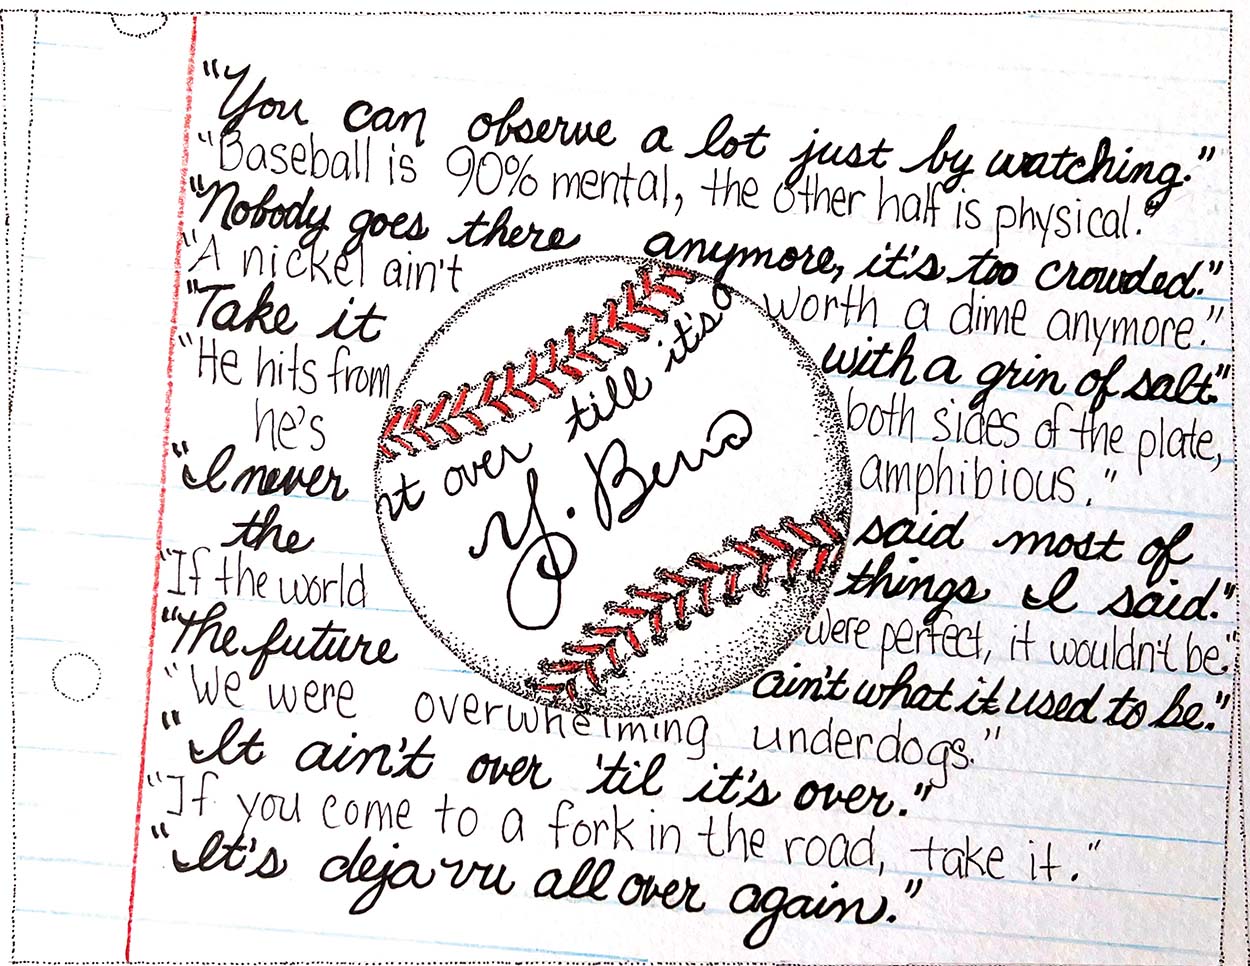 "You can observe a lot just by watching."
"Baseball is 90% mental, the other half is physical."
"Nobody goes there anymore, it's too crowded."
"A nickel ain't worth a dime anymore."
"Take it with a grin of salt."
"He hits from both sides of the plate,
he's amphibious."
"I never said most of
the things I said."
"If the world were perfect, it wouldn't be."
"The future ain't what it used to be."
"We were overwhelming underdogs."
"It ain't over 'til it's over."
"If you come to a fork in the road, take it."
"It's deja vu all over again."
n't over till it's o
Y. Berra